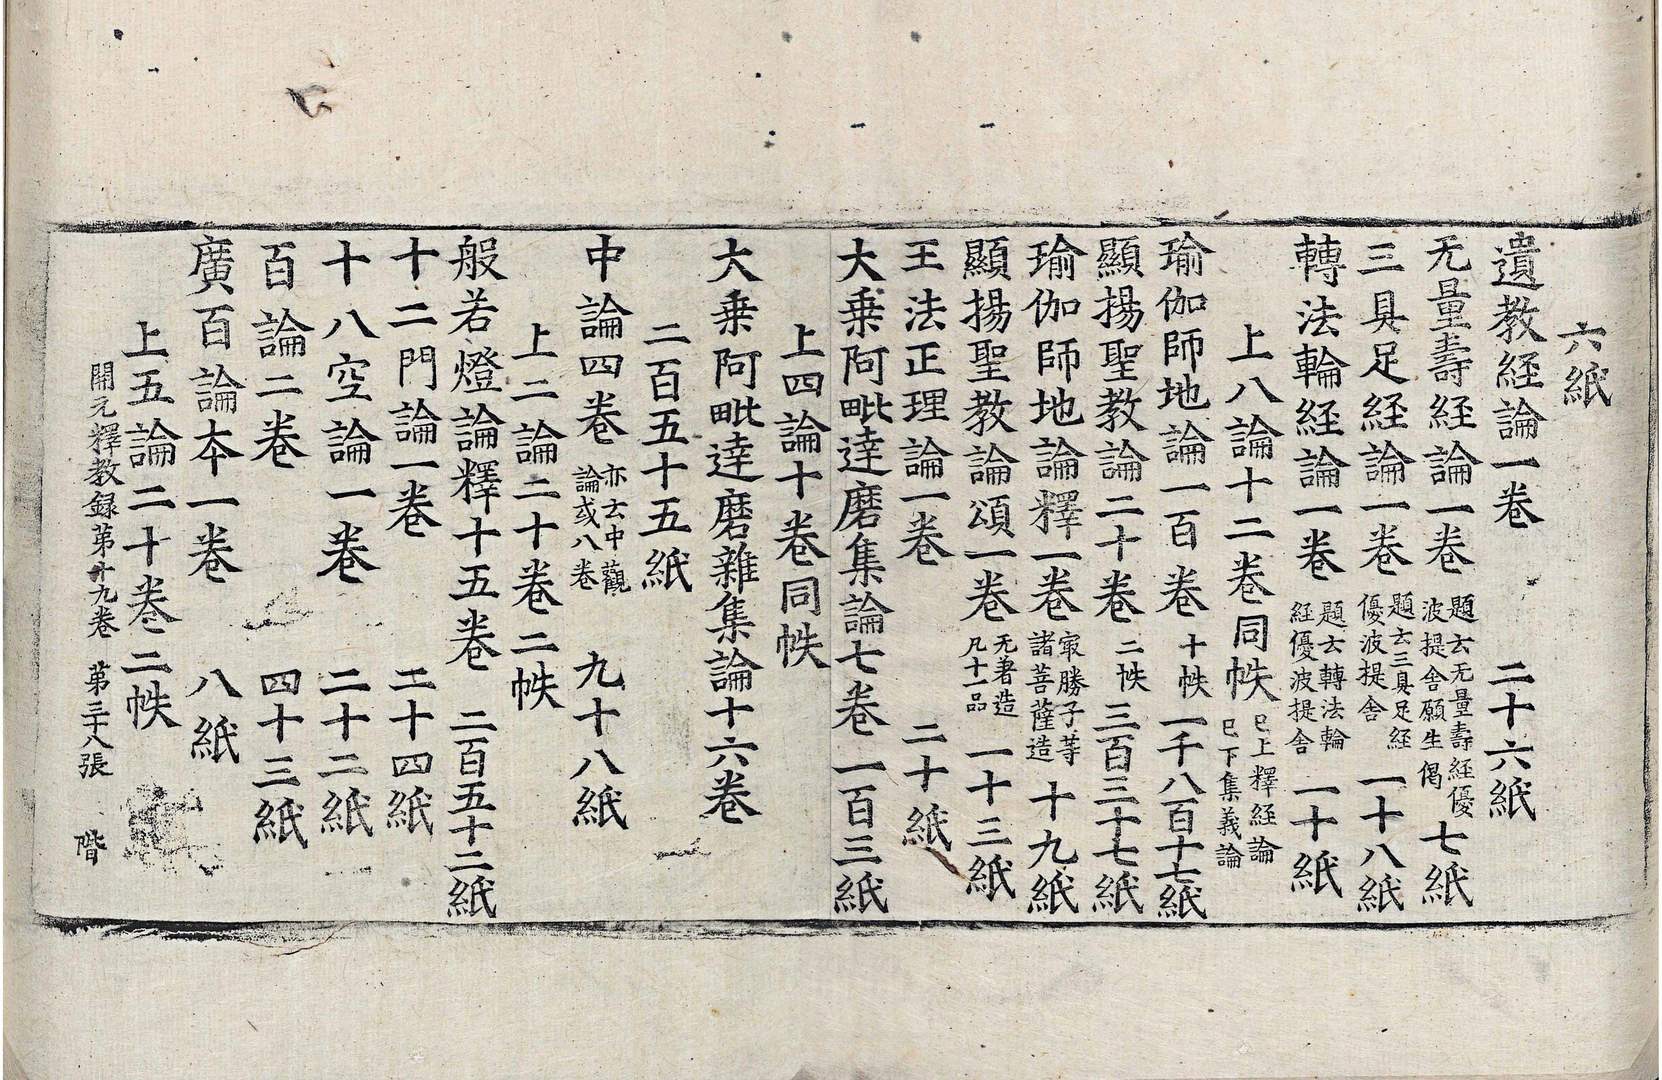 六紙
遺教経論一卷 二十六紙
无量壽経論一卷 題云无量壽経優波提舍願生偈 七紙
三具足経論一卷 題云三具足経優波提舍 一十八紙
轉法輪経論一卷 題云轉法輪経優波提舍 一十紙
上八論十二卷同帙 已上釋経論已下集義論
瑜伽師地論一百卷 十帙 一千八百十七紙
顯揚聖教論二十卷 二帙 三百三十七紙
瑜伽師地論釋一卷 㝡勝子等諸菩薩造 十九紙
顯揚聖教論頌一卷 无著造凡十一品 一十三紙
王法正理論一卷 二十紙
大乗阿毗達磨集論七卷 一百三紙
上四論十卷同帙
大乗阿毗達磨雜集論十六卷
二百五十五紙
中論四卷 亦云中觀論或八卷 九十八紙
上二論二十卷二帙
般若燈論釋十五卷 二百五十二紙
十二門論一卷 二十四紙
十八空論一卷 二十二紙
百論二卷 四十三紙
廣百論本一卷 八紙
上五論二十卷二帙
開元釋教録第十九卷 第三十八張 階